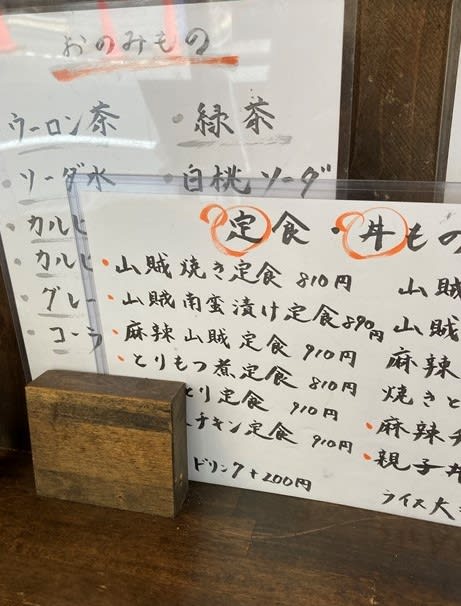 おのみもの
・ウーロン茶 ・緑茶
・ソーダ水 ・白桃ソーダ
・カルピ
・カルピ
・グレー
・コーラ
定食・丼もの
・山賊焼き定食 810円
・山賊南蛮漬け定食 890円
・麻辣山賊定食 910円
・とりもつ煮定食 810円
とり定食 910円
チキン定食 910円
ドリンク+200円
山賊
山賊
麻辣
焼きと
・麻辣チ
・親子丼
ライス大